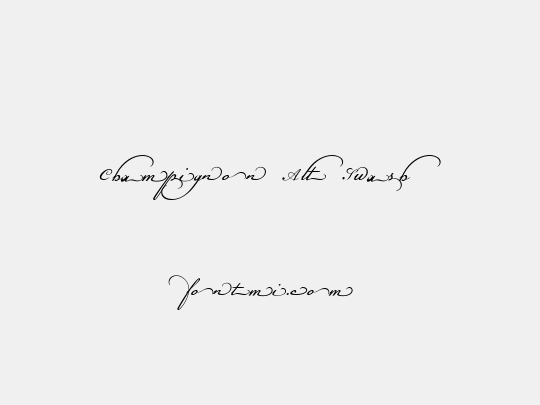 Champignon Alt Swash
fontmi.com